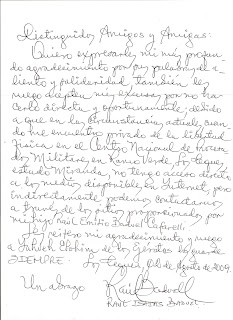 Distinguidos Amigos y Amigas:
Quiero expresarles mi más profun
do agradecimiento por sus palabras de a
liento y solidaridad, también les
ruego acepten mis excusas por no ha
cerlo directa y oportunamente, debido
a que en las circunstancias actuales, cuan
do me encuentro privado de la libertad
física en el Centro Nacional de Procesa
dos Militares, en Ramo Verde, Los Teques,
estado Miranda, no tengo acceso directo
a los medios disponibles en Internet, pero
indirectamente podemos contactarnos
a través de los sitios proporcionados por
mi hijo Raúl Emilio Baduel Cafarelli.
Les reitero mi agradecimiento y ruego
a Yahveh Elohim de los Ejércitos les guarde
SIEMPRE. Los Teques, 04 de Agosto de 2009.
Un abrazo Raúl Baduel
RAÚL ISAÍAS BADUEL